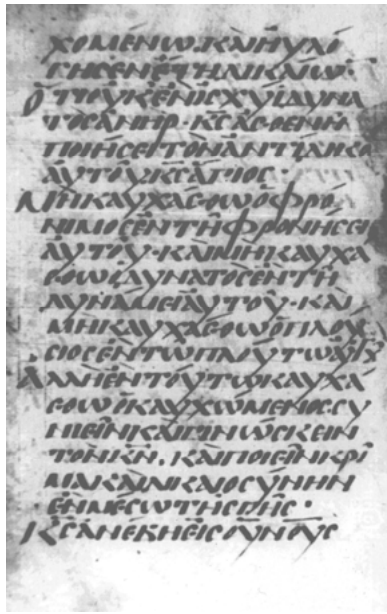 χομένω. καὶ ηὐλό
γησεν ἔτη δικαίω·
ὅτι οὐκ ἐν ἰσχύϊ δυνα
τὸς ἀνήρ· κς ἀσθενῆ
ποιήσει τὸν ἀντίδικο
αὐτοῦ κς ἅγιος·
Μὴ καυχάσθω ὁ φρό
νιμος ἐν τῆ φρονήσει
αὐτοῦ· καὶ μὴ καυχά
σθω ὁ δυνατὸς ἐν τῆ
δυνάμει αὐτοῦ· καὶ
μὴ καυχάσθω ὁ πλού
σιος ἐν τῶ πλούτω αὐτ
Ἀλλ ἢ ἐν τούτω καυχά
σθω ὁ καυχώμενος συ
νιεῖν καὶ γινώσκειν
τὸν κν. καὶ ποιεῖν κρί
μα καὶ δικαιοσύνην
ἐν μέσω τῆς γῆς·
Κς ἀνέβη εἰς οὐνους